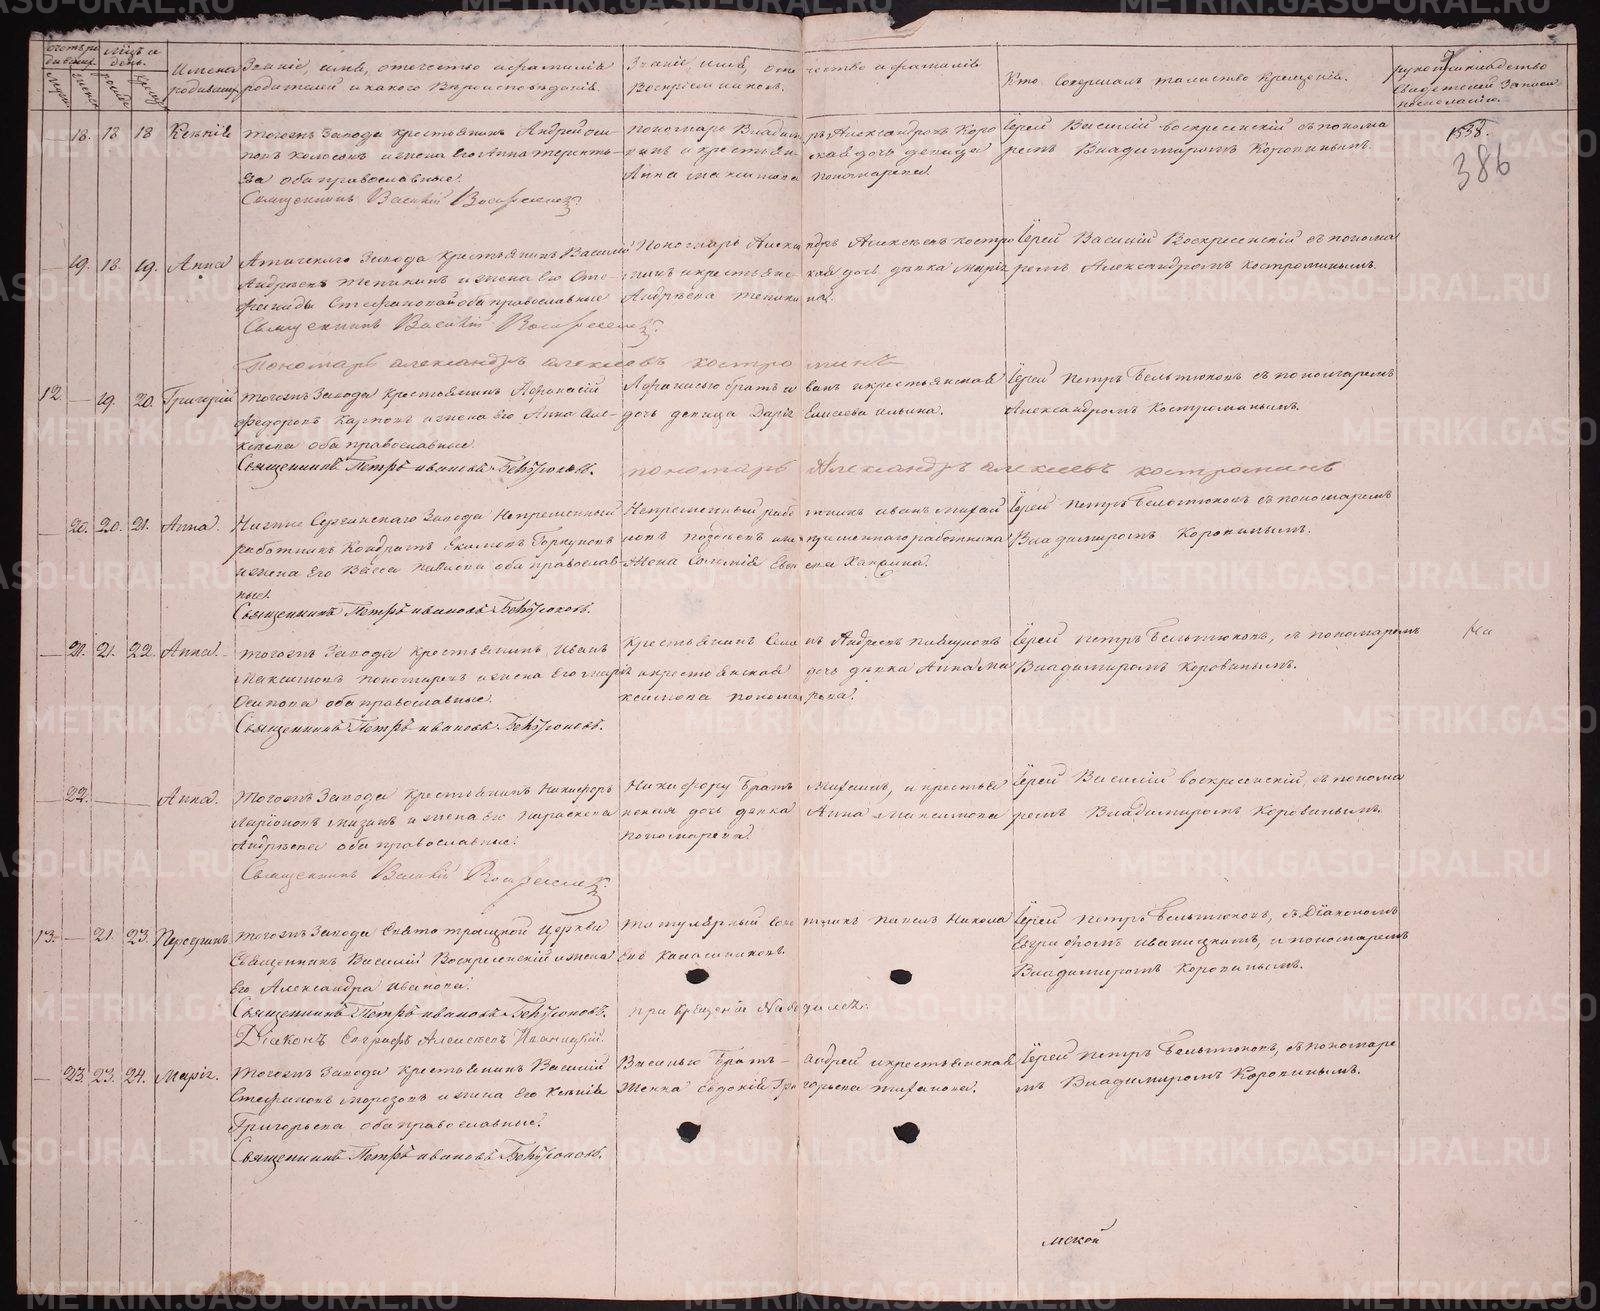 Счетъ родившихся
Мѣц. и день.
Имена родившихся
Званіе, имя, отчество и фамилія родителей и какого Вѣроисповѣданія.
Званіе, имя, отчество и фамилія Воспріемниковъ.
Кто совершалъ таинство Крещенія.
Рукоприкладство свидетелей записи по желанію.
386
18. 18 18 Ксенія
тогожъ Завода крестьянинъ Андрей
и жена его Анна
ва оба православные.
Священникъ Василій Воскресенскій
Пономарь Владиміръ Александровъ Коро
винъ и крестьянская дочь девица
Анна Максимова Пономарева.
Іерей Василій Воскресенскій съ понома
ремъ Владимиромъ Коровинымъ.
19. 18. 19. Анна
Крестьянинъ Василій
Андреевъ Тепикинъ и жена Его Сте
Стефанова оба православные
Священникъ Василій Воскресенскій
Пономарь Александръ Алексѣевъ Костро
минъ и крестьянская дочь дѣвка Марія
Андрѣева Тепикина.
Іерей Василій Воскресенскій съ понома
ремъ Александромъ Костроминымъ.
Пономарь Александръ Алексеевъ Костроминъ
12. — 19. 20. Григорій
тогожъ Завода Крестьянинъ Афонасій
Федоровъ Карповъ и жена Его Анна Але
ксѣева оба православные.
Священникъ Петръ Ивановъ Бельтюковъ.
Афанасью братъ Иванъ и крестьянская
дочь девица Дарія Елисеева Ильина.
Іерей Петръ Бельтюковъ съ пономаремъ
Александромъ Костроминымъ.
пономарь Александръ Алексеевъ Костроминъ
— 20. 20. 21. Анна.
Нижне Сергинскаго Завода Непременный
работникъ Кондратъ Екимовъ Горкуновъ
и жена Его Васса оба православ
ные.
Священникъ Петръ Ивановъ Бельтюковъ.
Непременный работникъ Иванъ Михай
ловъ и непременнаго работника
жена Соломія
Іерей Петръ Бельтюковъ съ пономаремъ
Владимиромъ Коровинымъ.
— 21. 21. 22. Анна.
тогожъ Завода крестьянинъ Иванъ
Максимовъ Пономаревъ и жена Его Марія
Осипова оба православные.
Священникъ Петръ Ивановъ Бельтюковъ.
Крестьянинъ Андреевъ
и крестьянская дочь дѣвка Анна Ма
ксимова Пономарева.
Іерей Петръ Бельтюковъ, съ пономаремъ
Владимиромъ Коровинымъ.
На
— 22. — — Анна.
Тогожъ Завода Крестьянинъ Никифоръ
Ларіоновъ Мизинъ и жена Его Параскева
Андрѣева оба православные.
Священникъ Василій Воскресенскій
Никифору Братъ Михаилъ, и крестья
нская дочь дѣвка Анна Максимова
Пономарева.
Іерей Василій Воскресенскій, съ понома
ремъ Владимиромъ Коровинымъ.
13. — 21. 23.
тогожъ Завода Свято троицкой Церкви
Священникъ Василій Воскресенскій и жена
Его Александра Иванова.
Священникъ Петръ Ивановъ Бельтюковъ.
Діаконъ Евграфъ Алексеевъ Иваницкій.
Титулярный Советникъ Павелъ Никола
евъ Калашниковъ.
при крещеніи находился
Іерей Петръ Бельтюковъ, съ Діакономъ
Евграфомъ Иваницкимъ, и пономаремъ
Владимиромъ Коровинымъ.
— 23. 23. 24. Марія.
Тогожъ Завода крестьянинъ Василій
Стефановъ Морозовъ и жена Его Ксенія
Григорьева оба православные.
Священникъ Петръ Ивановъ Бельтюковъ.
Василью Братъ Андрей и крестьянская
женка Евдокія Григорьева Тиханова.
Іерей Петръ Бельтюковъ, съ пономаре
мъ Владимиромъ Коровинымъ.
мской